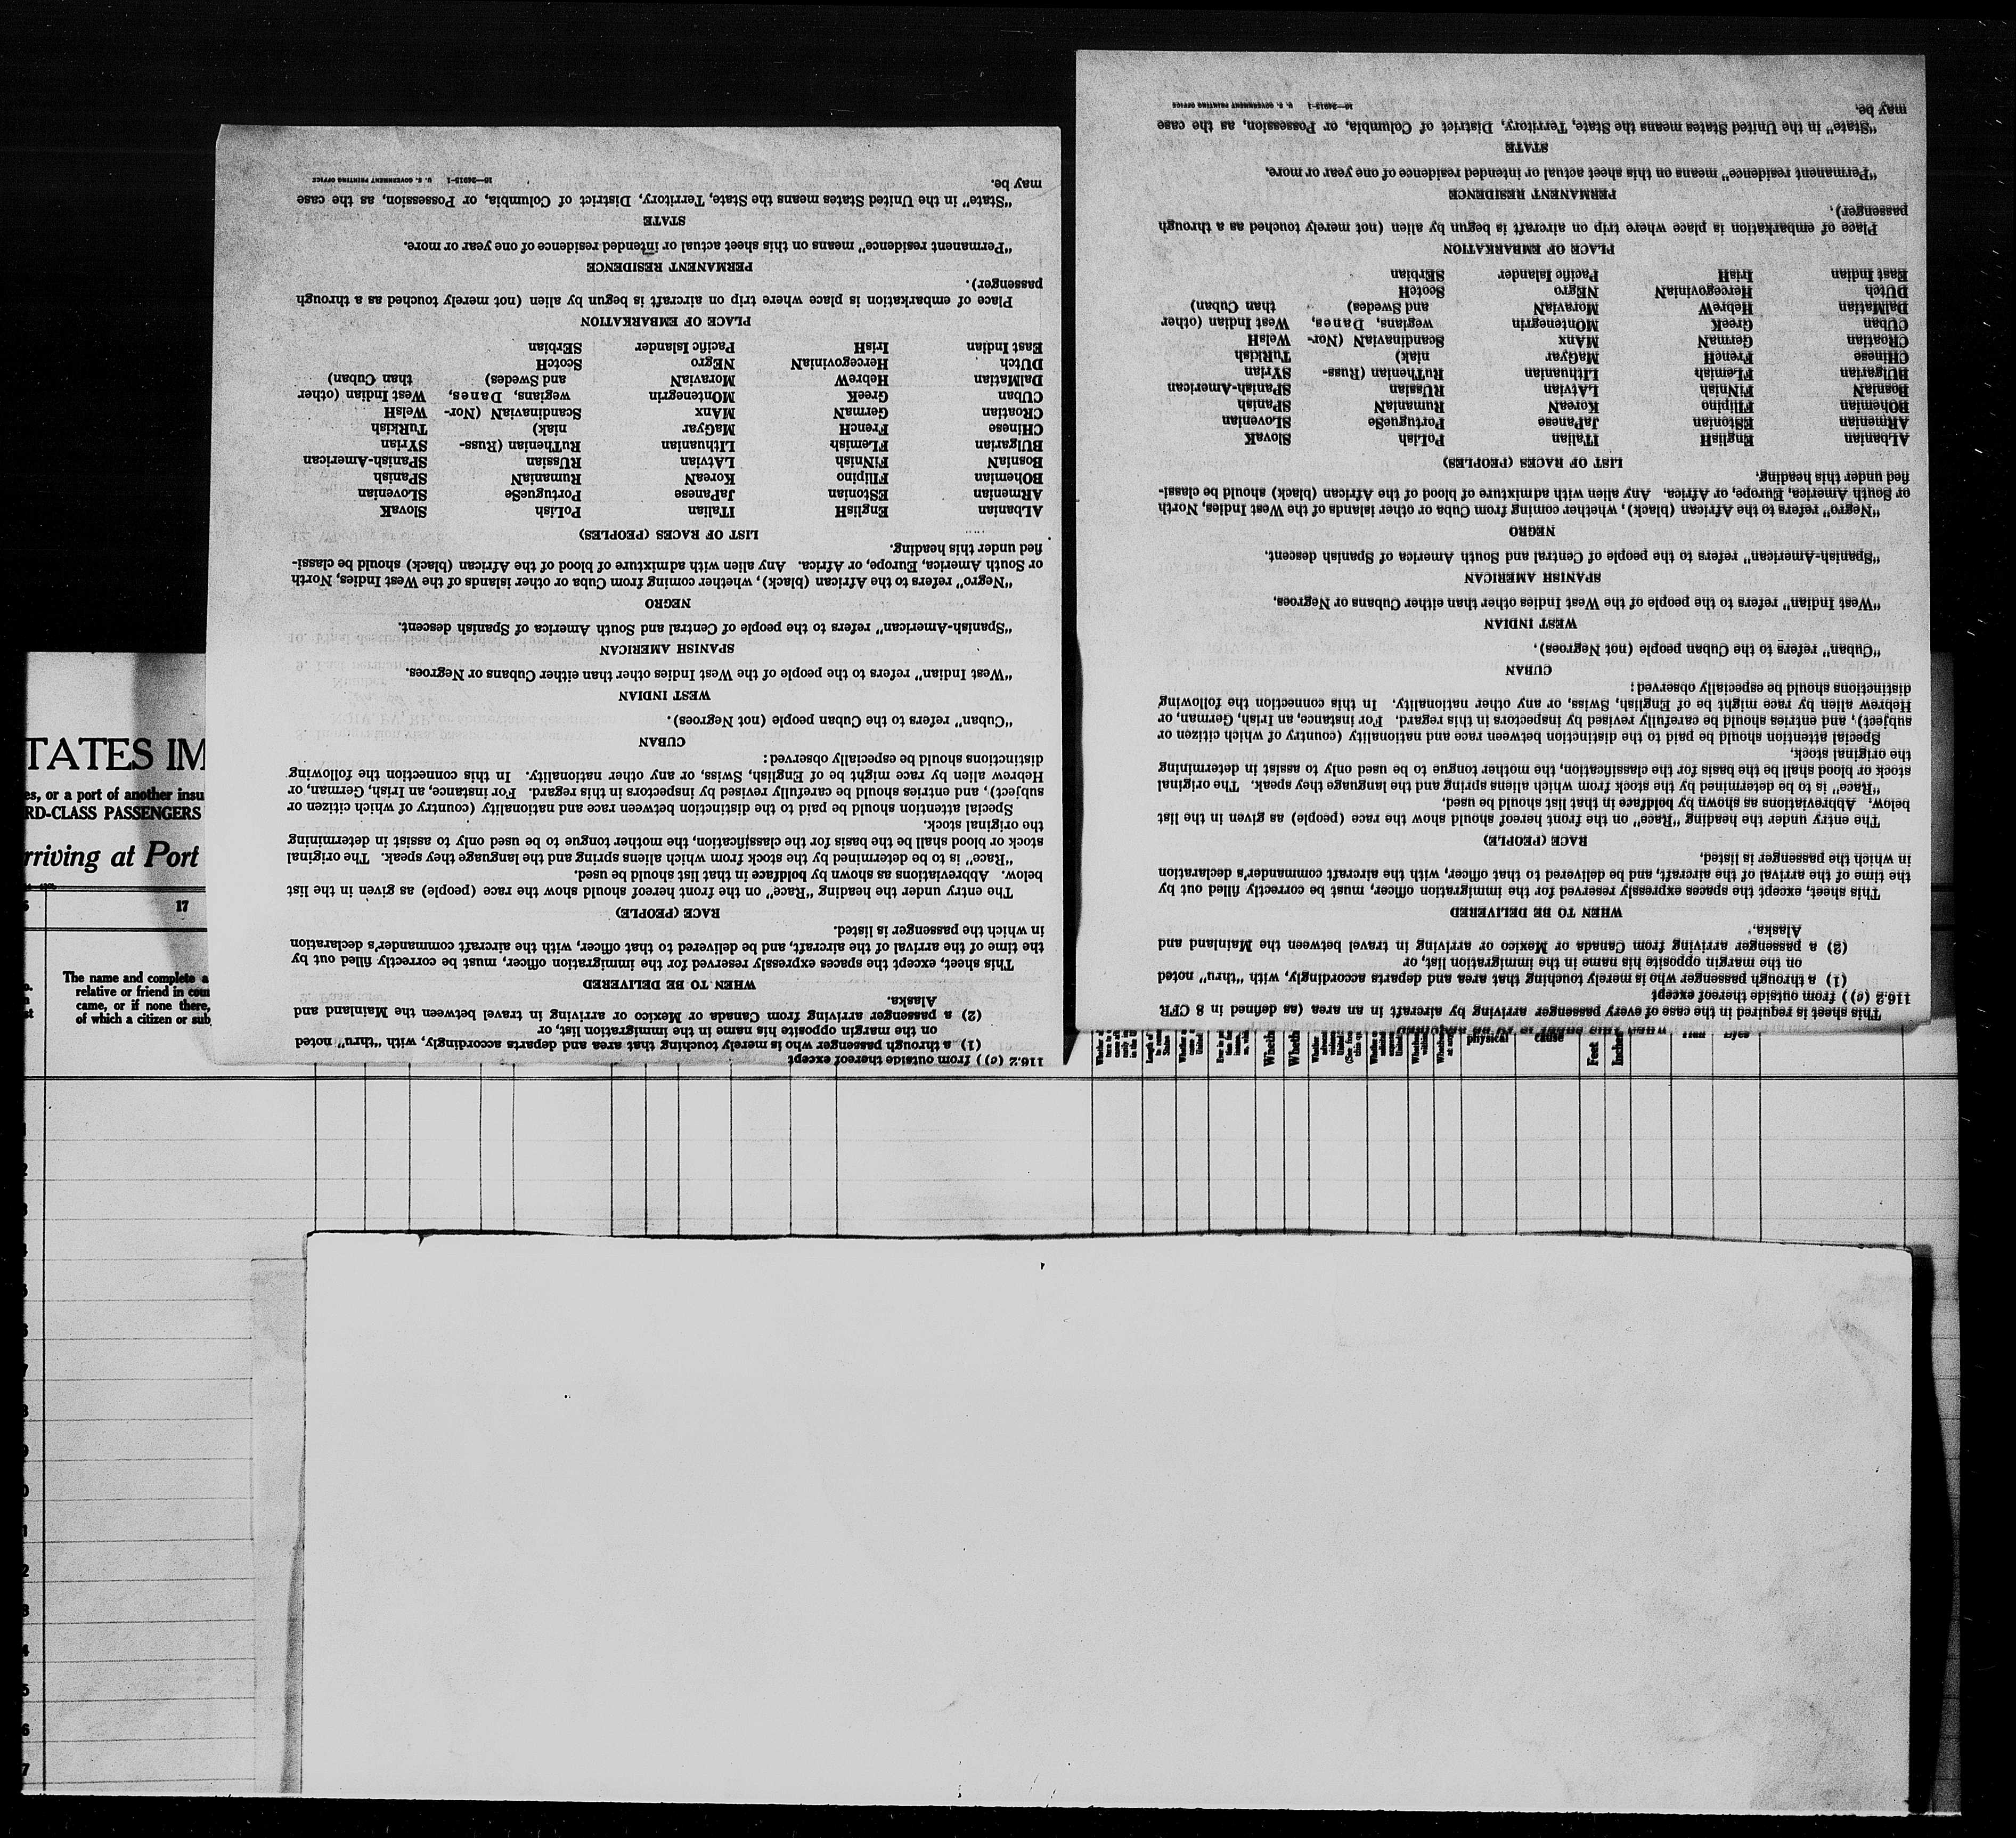 This sheet is required in the case of every passenger arriving by aircraft in an area (as defined in 8 CFR
116.2 (c)) from outside thereof except
(1) a through passenger who is merely touching that area and departs accordingly, with "thru" noted
on the margin opposite his name in the immigration list, or
(2) a passenger arriving from Canada or Mexico or arriving in travel between the Mainland and
Alaska.
WHEN TO BE DELIVERED
This sheet, except the spaces expressly reserved for the immigration officer, must be correctly filled out by
the time of the arrival of the aircraft, and be delivered to that officer, with the aircraft commander's declaration
in which the passenger is listed.
RACE (PEOPLE)
The entry under the heading "Race" on the front hereof should show the race (people) as given in the list
below. Abbreviations as shown by boldface in that list should be used.
"Race" is to be determined by the stock from which aliens spring and the language they speak. The original
stock or blood shall be the basis for the classification, the mother tongue to be used only to assist in determining
the original stock.
Special attention should be paid to the distinction between race and nationality (country of which citizen or
subject), and entries should be carefully revised by inspectors in this regard. For instance, an Irish, German, or
Hebrew alien by race might be of English, Swiss, or any other nationality. In this connection the following
distinctions should be especially observed:
CUBAN
"Cuban" refers to the Cuban people (not Negroes).
WEST INDIAN
"West Indian" refers to the people of the West Indies other than either Cubans or Negroes.
SPANISH AMERICAN
"Spanish-American" refers to the people of Central and South America of Spanish descent.
NEGRO
"Negro" refers to the African (black), whether coming from Cuba or other islands of the West Indies, North
or South America, Europe, or Africa. Any alien with admixture of blood of the African (black) should be classi-
fied under this heading.
LIST OF RACES (PEOPLES)
ALbanian EnglisH ITalian PoLish SlovaK
ARmenian EStonian JaPanese PortuguеSe SLOvenian
BOhemian FIlipino KoreaN RumaniaN SPanish
BosniaN FiNnish LAtvian RUssian SPanish-American
BUlgarian FLemish LIthuanian RuThenian (Russ- SYrian
CHinese FrencH MaGyar niak) TuRkish
CRoatian GermaN MAnx ScandinaviaN (Nor- WelsH
CUban GreeK MOntenegrin wegians, Danes, West Indian (other
DalMatian HebreW MoraviaN and Swedes) than Cuban)
DUtch HercegoviniaN NEgro ScotcH
East Indian IrisH Pacific Islander SErbian
PLACE OF EMBARKATION
Place of embarkation is place where trip on aircraft is begun by alien (not merely touched as a through
passenger).
PERMANENT RESIDENCE
"Permanent residence" means on this sheet actual or intended residence of one year or more.
STATE
"State" in the United States means the State, Territory, District of Columbia, or Possession, as the case
may be.
16—24915-1 U. S. GOVERNMENT PRINTING OFFICE
116.2 (c)) from outside thereof except
(1) a through passenger who is merely touching that area and departs accordingly, with "thru" noted
on the margin opposite his name in the immigration list, or
(2) a passenger arriving from Canada or Mexico or arriving in travel between the Mainland and
Alaska.
WHEN TO BE DELIVERED
This sheet, except the spaces expressly reserved for the immigration officer, must be correctly filled out by
the time of the arrival of the aircraft, and be delivered to that officer, with the aircraft commander's declaration
in which the passenger is listed.
RACE (PEOPLE)
The entry under the heading "Race" on the front hereof should show the race (people) as given in the list
below. Abbreviations as shown by boldface in that list should be used.
"Race" is to be determined by the stock from which aliens spring and the language they speak. The original
stock or blood shall be the basis for the classification, the mother tongue to be used only to assist in determining
the original stock.
Special attention should be paid to the distinction between race and nationality (country of which citizen or
subject), and entries should be carefully revised by inspectors in this regard. For instance, an Irish, German, or
Hebrew alien by race might be of English, Swiss, or any other nationality. In this connection the following
distinctions should be especially observed:
CUBAN
"Cuban" refers to the Cuban people (not Negroes).
WEST INDIAN
"West Indian" refers to the people of the West Indies other than either Cubans or Negroes.
SPANISH AMERICAN
"Spanish-American" refers to the people of Central and South America of Spanish descent.
NEGRO
"Negro" refers to the African (black), whether coming from Cuba or other islands of the West Indies, North
or South America, Europe, or Africa. Any alien with admixture of blood of the African (black) should be classi-
fied under this heading.
LIST OF RACES (PEOPLES)
ALbanian EnglisH ITalian PoLish SlovaK
ARmenian EStonian JaPanese PortuguеSe SLOvenian
BOhemian FIlipino KoreaN RumaniaN SPanish
BosniaN FiNnish LAtvian RUssian SPanish-American
BUlgarian FLemish LIthuanian RuThenian (Russ- SYrian
CHinese FrencH MaGyar niak) TuRkish
CRoatian GermaN MAnx ScandinaviaN (Nor- WelsH
CUban GreeK MOntenegrin wegians, Danes, West Indian (other
DalMatian HebreW MoraviaN and Swedes) than Cuban)
DUtch HercegoviniaN NEgro ScotcH
East Indian IrisH Pacific Islander SErbian
PLACE OF EMBARKATION
Place of embarkation is place where trip on aircraft is begun by alien (not merely touched as a through
passenger).
PERMANENT RESIDENCE
"Permanent residence" means on this sheet actual or intended residence of one year or more.
STATE
"State" in the United States means the State, Territory, District of Columbia, or Possession, as the case
may be.
16—24915-1 U. S. GOVERNMENT PRINTING OFFICE
TATES IM
es, or a port of another insu
RD-CLASS PASSENGERS
rriving at Port
17
The name and complete a
relative or friend in coun
came, or if none there,
of which a citizen or sub
physical cause Feet Inches